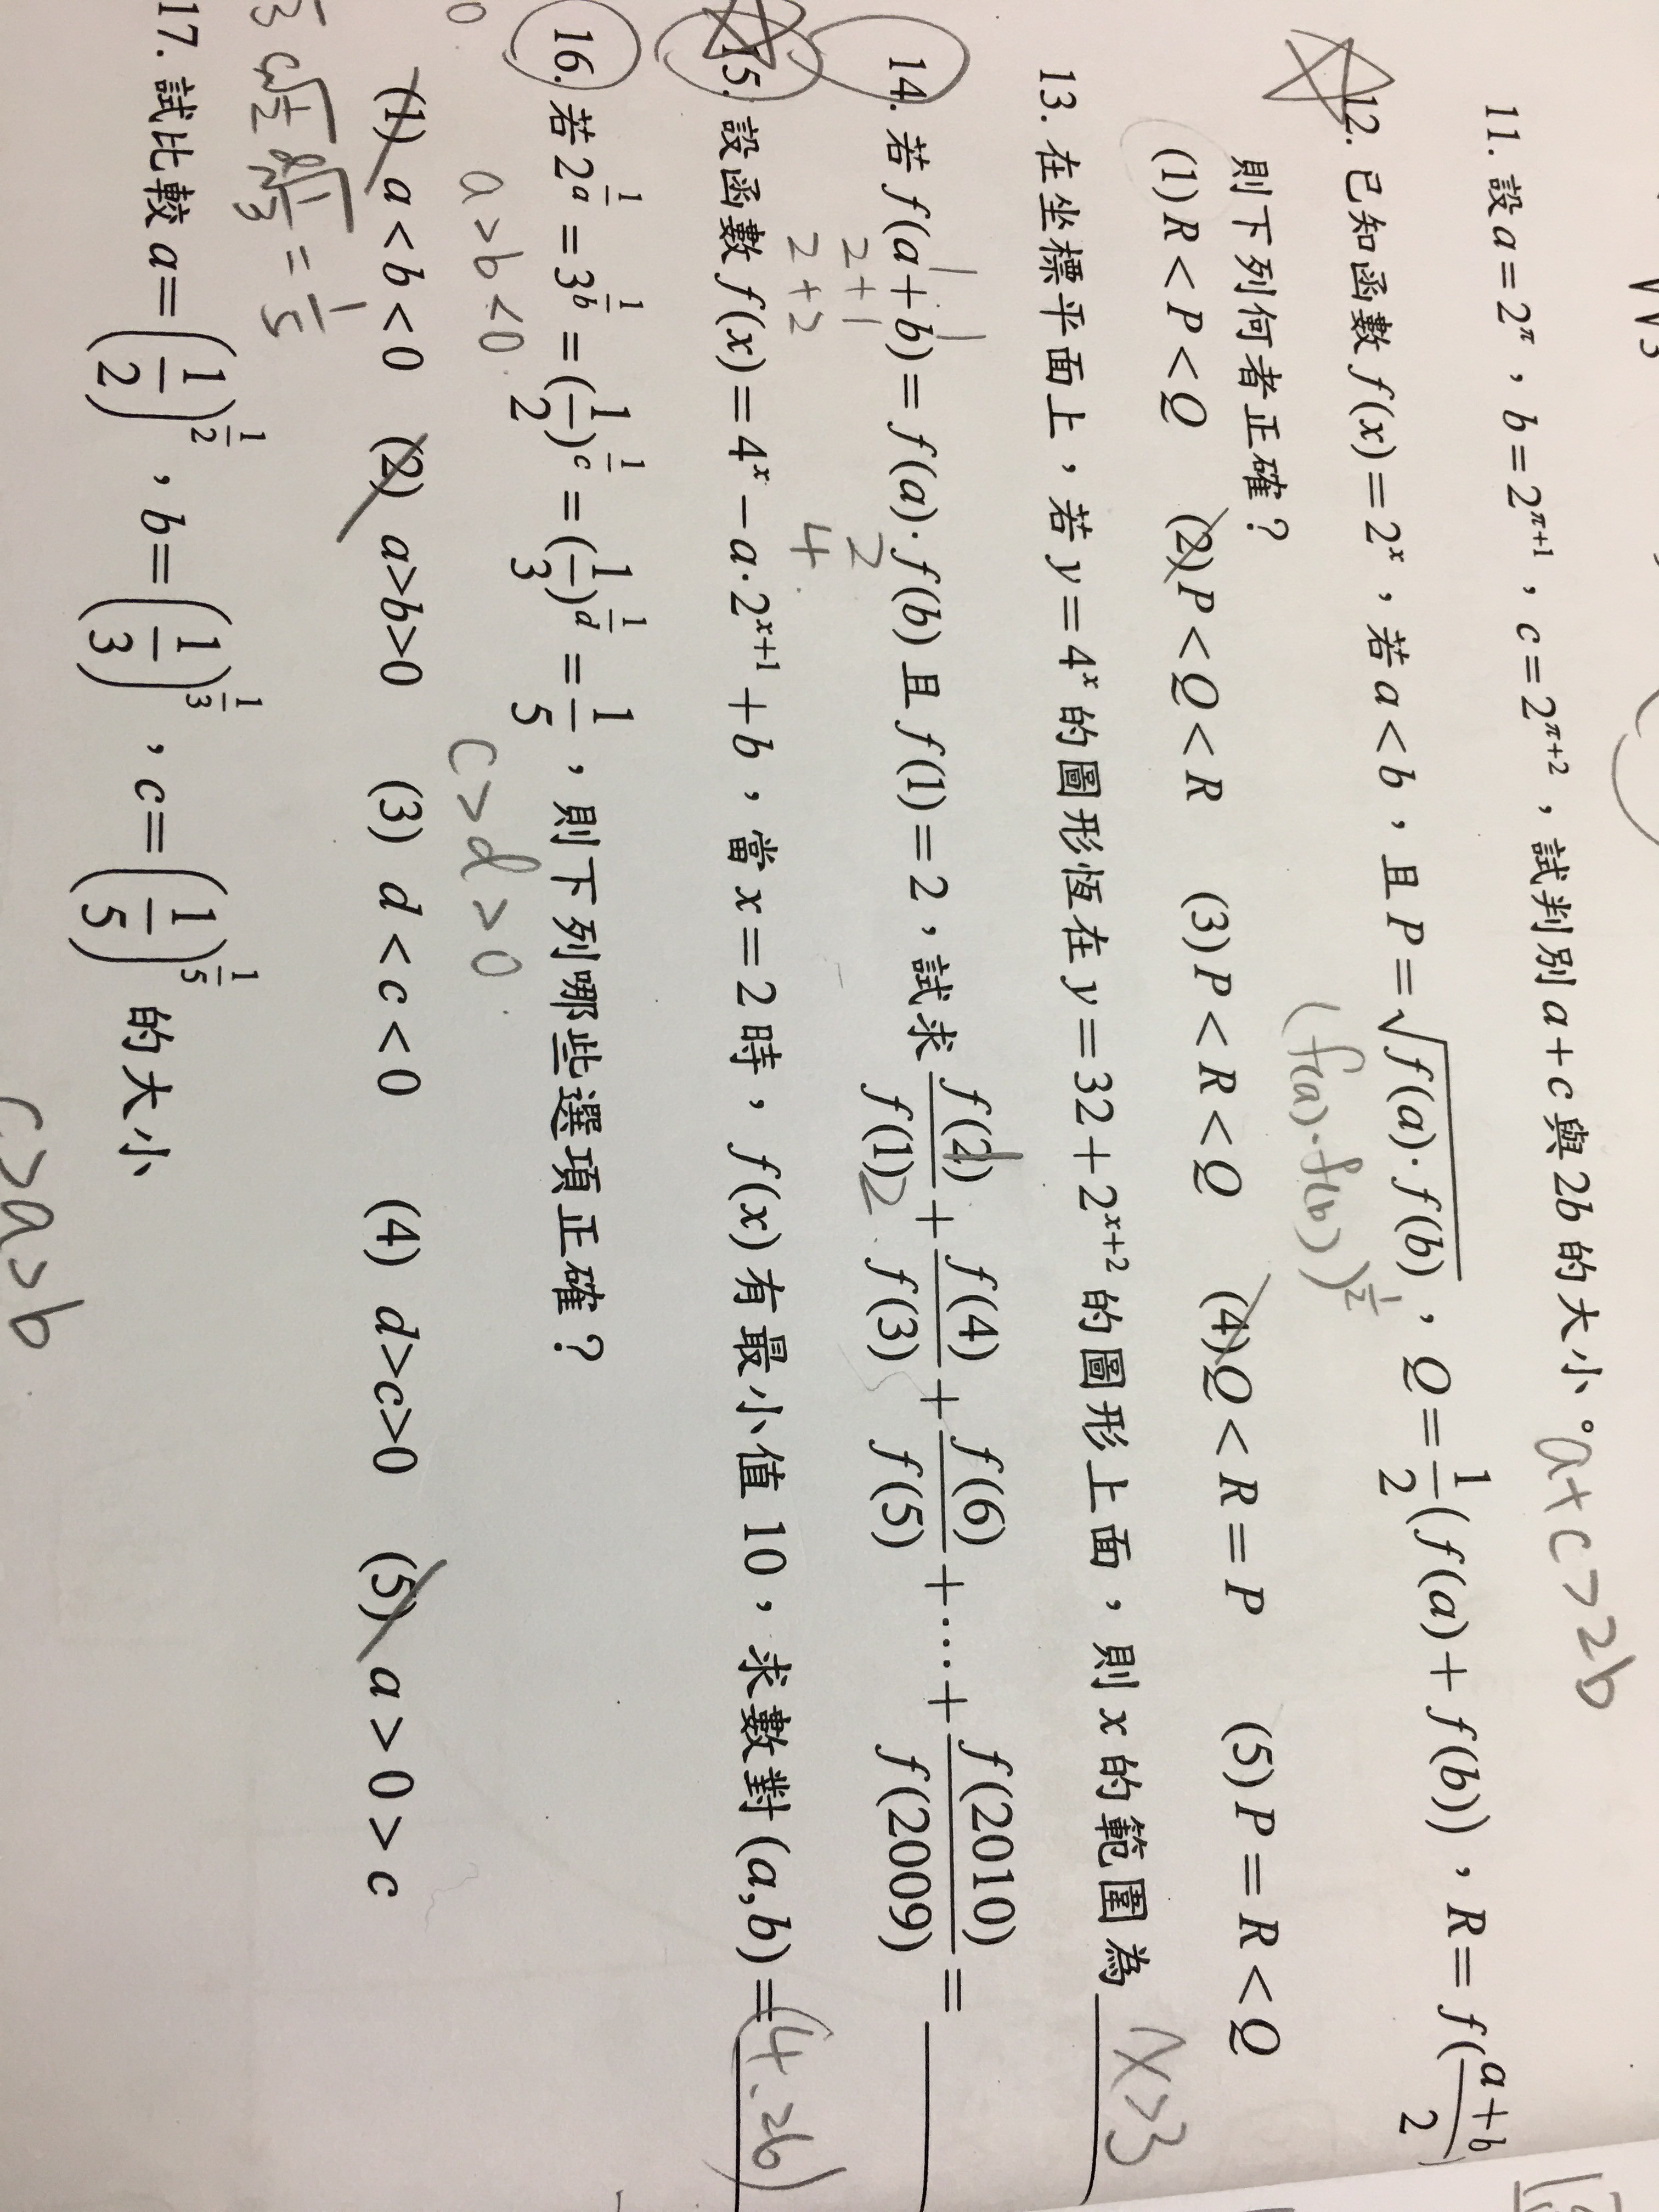 11. 設 a=2^π，b=2^(π+1)，c=2^(π+2)，試判別 a+c 與 2b 的大小。 a+c>2b
12. 已知函數 f(x)=2^x，若 a<b，且 P=√(f(a)·f(b))，Q=1/2(f(a)+f(b))，R=f((a+b)/2)
(f(a)·f(b))^(1/2)
則下列何者正確？
(1)R<P<Q (2)P<Q<R (3)P<R<Q (4)Q<R=P (5)P=R<Q
13. 在坐標平面上，若 y=4^x 的圖形恆在 y=32+2^(x+2) 的圖形上面，則 x 的範圍為 x>3
14. 若 f(a+b)=f(a)·f(b) 且 f(1)=2，試求 f(2)/f(1)+f(4)/f(3)+f(6)/f(5)+⋯+f(2010)/f(2009)=
1 1
2
2+1 2
2+2 4
15. 設函數 f(x)=4^x−a·2^(x+1)+b，當 x=2 時，f(x) 有最小值 10，求數對 (a,b)= (4.26)
16. 若 2^(1/a)=3^(1/b)=(1/2)^(1/c)=(1/3)^(1/d)=1/5，則下列哪些選項正確？
a>b<0 c>d>0
(1) a<b<0 (2) a>b>0 (3) d<c<0 (4) d>c>0 (5) a>0>c
= 1/5
17. 試比較 a=(1/2)^(1/2)，b=(1/3)^(1/3)，c=(1/5)^(1/5) 的大小
c>a>b